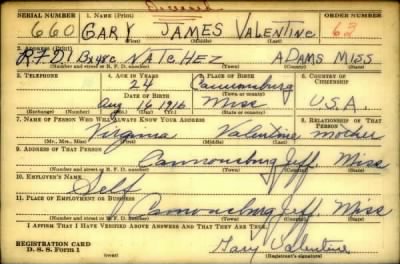 Deceased
SERIAL NUMBER 1. NAME (Print) ORDER NUMBER
660 GARY JAMES VALENTINE 63
(First) (Middle) (Last)
2. ADDRESS (Print)
R.F.D1 Bx48c NATCHEZ ADAMS MISS
(Number and street or R. F. D. number) (Town) (County) (State)
3. TELEPHONE 4. AGE IN YEARS 5. PLACE OF BIRTH 6. COUNTRY OF CITIZENSHIP
24 Cannonsburg
DATE OF BIRTH (Town or county)
Aug 16 1916 Miss U.S.A.
(Exchange) (Number) (Mo.) (Day) (Yr.) (State or country)
7. NAME OF PERSON WHO WILL ALWAYS KNOW YOUR ADDRESS 8. RELATIONSHIP OF THAT PERSON
Virginia Valentine mother
(Mr., Mrs., Miss) (First) (Middle) (Last)
9. ADDRESS OF THAT PERSON
Cannonsburg Jeff. Miss
(Number and street or R. F. D. number) (Town) (County) (State)
10. EMPLOYER'S NAME
Self
11. PLACE OF EMPLOYMENT OR BUSINESS
Cannonsburg Jeff. Miss
(Number and street or R. F. D. number) (Town) (County) (State)
I AFFIRM THAT I HAVE VERIFIED ABOVE ANSWERS AND THAT THEY ARE TRUE.
REGISTRATION CARD
D. S. S. Form 1 Gary Valentine
(Registrant's signature)